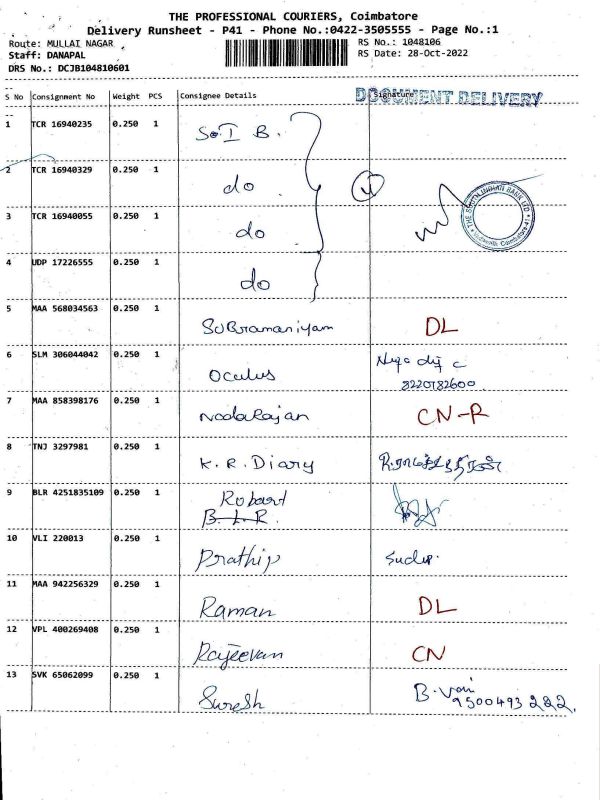 THE PROFESSIONAL COURIERS, Coimbatore
Delivery Runsheet - P41 - Phone No.:0422-3505555 - Page No.:1
Route: MULLAI NAGAR RS No.: 1048106
Staff: DANAPAL RS Date: 28-Oct-2022
DRS No.: DCJB104810601
S No Consignment No Weight PCS Consignee Details Signature
DOCUMENT DELIVERY
1 TCR 16940235 0.250 1 S.I B.
2 TCR 16940329 0.250 1 do
3 TCR 16940055 0.250 1 do
THE SOUTH INDIAN BANK LTD.
4 UDP 17226555 0.250 1 do
5 MAA 568034563 0.250 1 Subramaniyam DL
6 SLM 306044042 0.250 1 Oculus
8220782600
7 MAA 858398176 0.250 1 Nadarajan CN-R
8 TNJ 3297981 0.250 1 K. R. Diary
9 BLR 4251835109 0.250 1 Robart
B.L.R.
10 VLI 220013 0.250 1 Prathip
11 MAA 942256329 0.250 1 Raman DL
12 VPL 400269408 0.250 1 Rajeevan CN
13 SVK 65062099 0.250 1 Suresh B. Vani
9500493222.